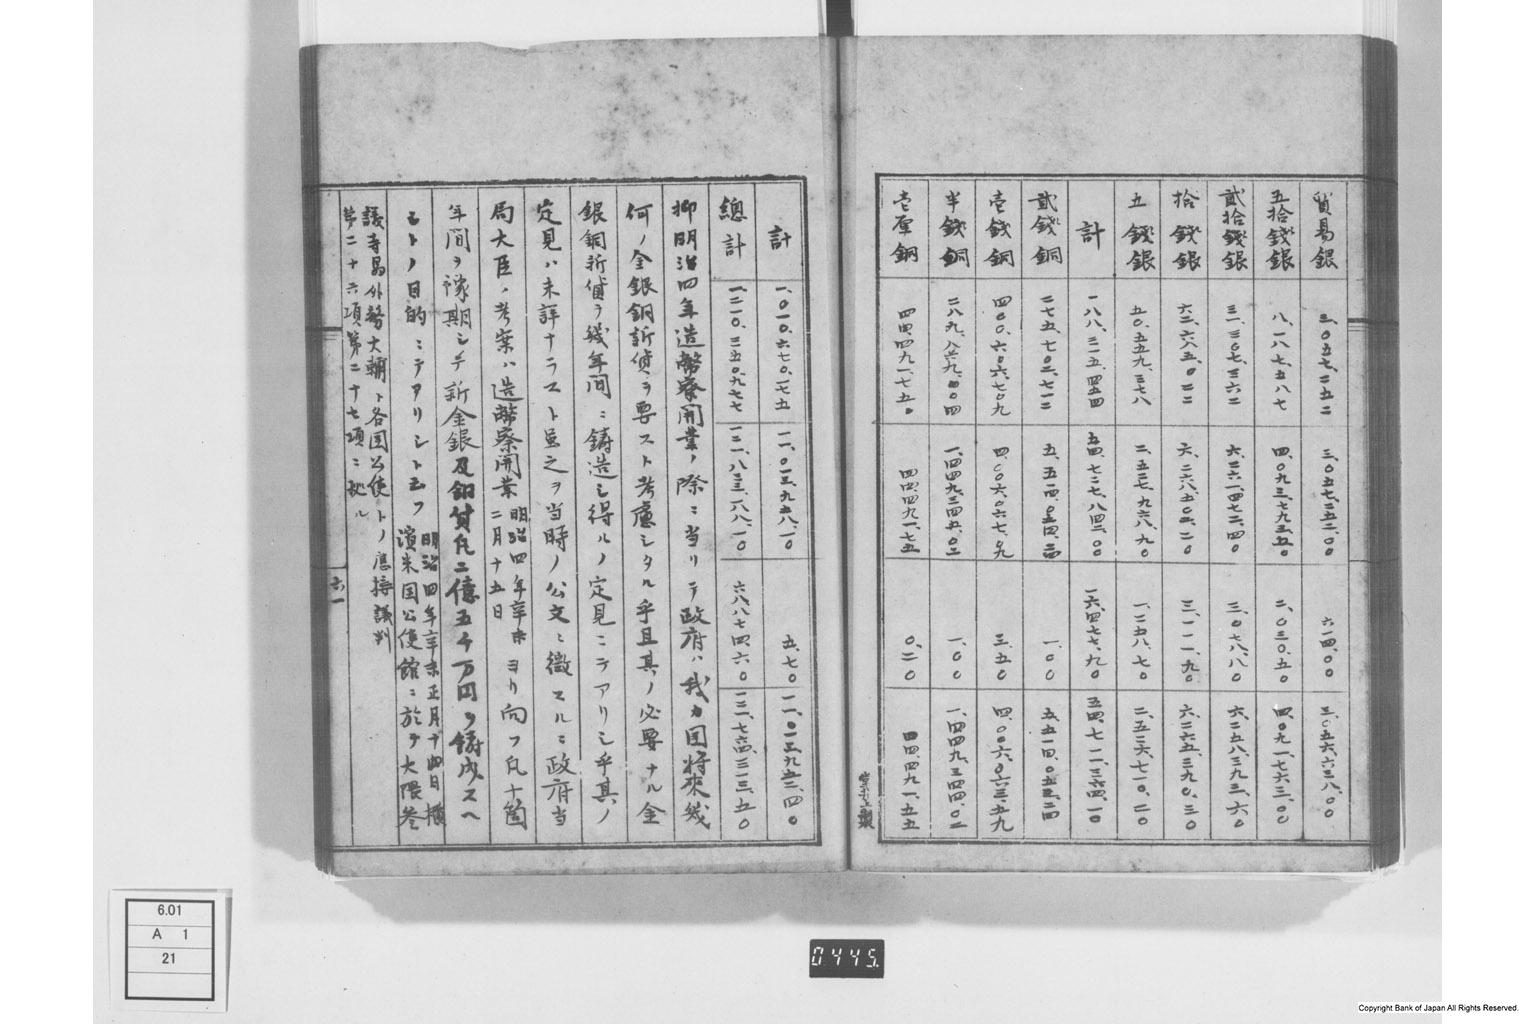 貿易銀 三、〇五七、二五二 三、〇五七、二五二、〇〇 六一四、〇〇 三、〇五六、六三八、〇〇
五拾錢銀 八、一八七、五八七 四、〇九三、七九三、五〇 二、〇三〇、五〇 四、〇九一、七六三、〇〇
貳拾錢銀 三一、三〇七、三六二 六、二六一、四七二、四〇 三、〇七八、八〇 六、二五八、三九三、六〇
拾錢銀 六二、六八五、〇二二 六、二六八、五〇二、二〇 三、一一一、九〇 六、二六五、三九〇、三〇
五錢銀 五〇、五五九、三七八 二、五二七、九六八、九〇 一、二五八、七〇 二、五二六、七一〇、二〇
計 一八八、三一五、四五四 五四、七二七、八四二、〇〇 一六、四七七、九〇 五四、七一一、三六四、一〇
貳錢銅 二七五、七〇二、七一二 五、五一四、〇五四、二四 一、〇〇 五、五一四、〇五三、二四
壱錢銅 四〇〇、六〇六、七〇九 四、〇〇六、〇六七、〇九 三、五〇 四、〇〇六、〇六三、五九
半錢銅 二八九、八六九、〇〇四 一、四四九、三四五、〇二 一、〇〇 一、四四九、三四四、〇二
壱厘銅 四四、四九一、七五〇 四四、四九一、七五 〇、二〇 四四、四九一、五五
計 一、〇一〇、六七〇、一七五 一一、〇一三、九五八、一〇 五、七〇 一一、〇一三、九五二、四〇
總計 一、二一〇、三五〇、九七七 一二一、八三三、一八八、一〇 六八、八七四、六〇 一二一、七六四、三一三、五〇
抑明治四年造幣寮開業ノ際ニ当リテ政府ハ我カ国将來幾
何ノ金銀銅新貨ヲ要スト考慮シタル乎且其ノ必要ナル金
銀銅新貨ヲ幾年間ニ鋳造シ得ルノ定見ニテアリシ乎其ノ
定見ハ未詳ナラスト虽之ヲ当時ノ公文ニ徴スルニ政府当
局大臣ノ考案ハ造幣寮開業明治四年辛未二月十五日ヨリ向フ凡十箇
年間ヲ豫期シテ新金銀及銅貨凡二億五千万円ヲ鋳成スヘ
キトノ目的ニテアリシト云フ明治四年辛未正月十四日横濱米国公使館ニ於テ大隈参
議寺島外務大輔ト各国公使トノ應接議判
第二十六項第二十七項ニ拠ル
六一
6.01
A 1
21
0445.
Copyright Bank of Japan All Rights Reserved.